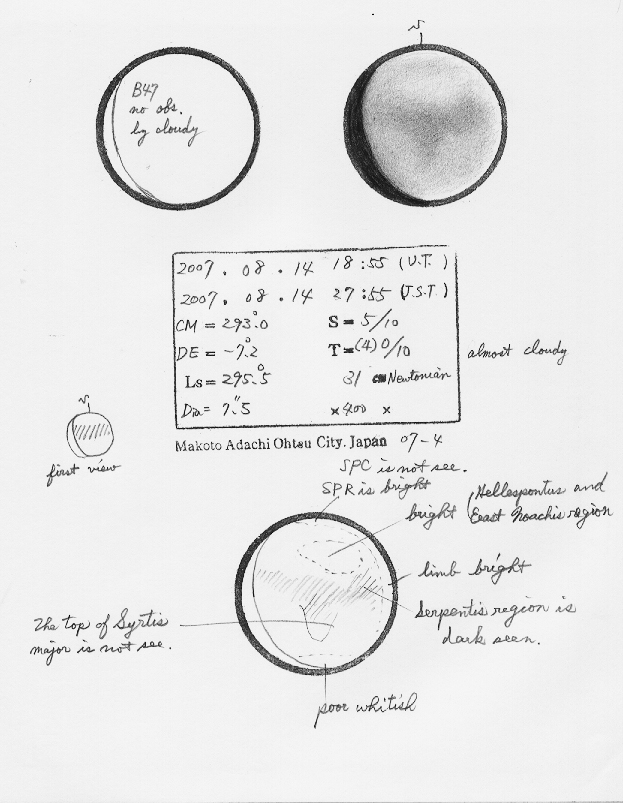 B47
no obs.
by cloudy
2007. 08. 14 18:55 (U.T.)
2007. 08. 14 27:55 (J.S.T.)
CM = 293.°0 S = 5/10
DE = -7.°2 T = (4) 0/10
almost cloudy
Ls = 295.°5 31 cm Newtonian
Dia = 7."5 ×400 ×
Makoto Adachi Ohtsu City. Japan 07-4
first view
SPC is not see.
SPR is bright
bright (Hellespontus and
East Noachis region
limb bright
Serpentis region is
dark seen.
The top of Syrtis
major is not see.
poor whitish